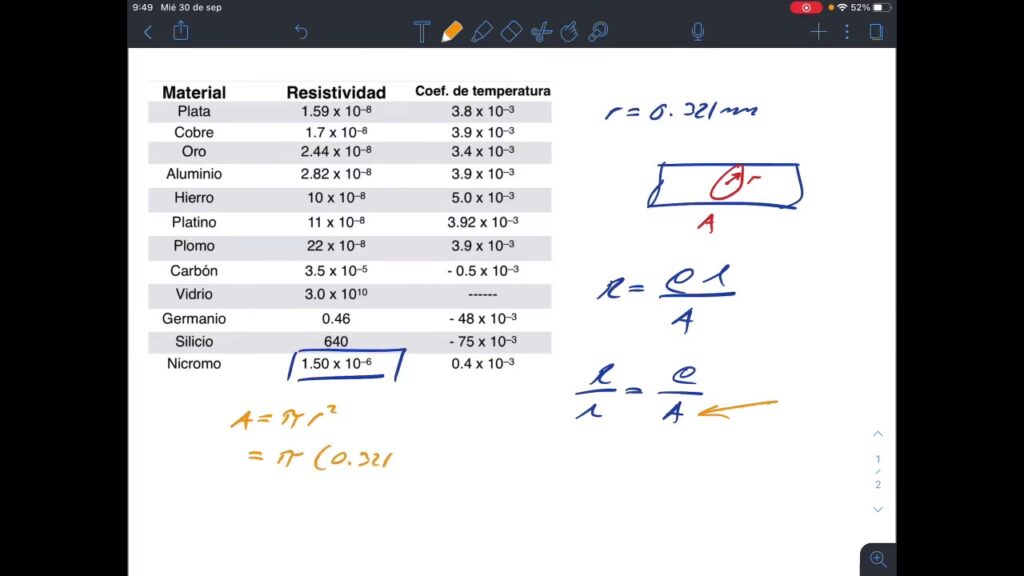 9:49 Mié 30 de sep
52%
Material Resistividad Coef. de temperatura
Plata 1.59 x 10⁻⁸ 3.8 x 10⁻³
Cobre 1.7 x 10⁻⁸ 3.9 x 10⁻³
Oro 2.44 x 10⁻⁸ 3.4 x 10⁻³
Aluminio 2.82 x 10⁻⁸ 3.9 x 10⁻³
Hierro 10 x 10⁻⁸ 5.0 x 10⁻³
Platino 11 x 10⁻⁸ 3.92 x 10⁻³
Plomo 22 x 10⁻⁸ 3.9 x 10⁻³
Carbón 3.5 x 10⁻⁵ - 0.5 x 10⁻³
Vidrio 3.0 x 10¹⁰ ------
Germanio 0.46 - 48 x 10⁻³
Silicio 640 - 75 x 10⁻³
Nicromo 1.50 x 10⁻⁶ 0.4 x 10⁻³
A = π r²
= π (0.321
r = 0.321 mm
r
A
R = ρ l / A
R / l = ρ / A
1
/
2